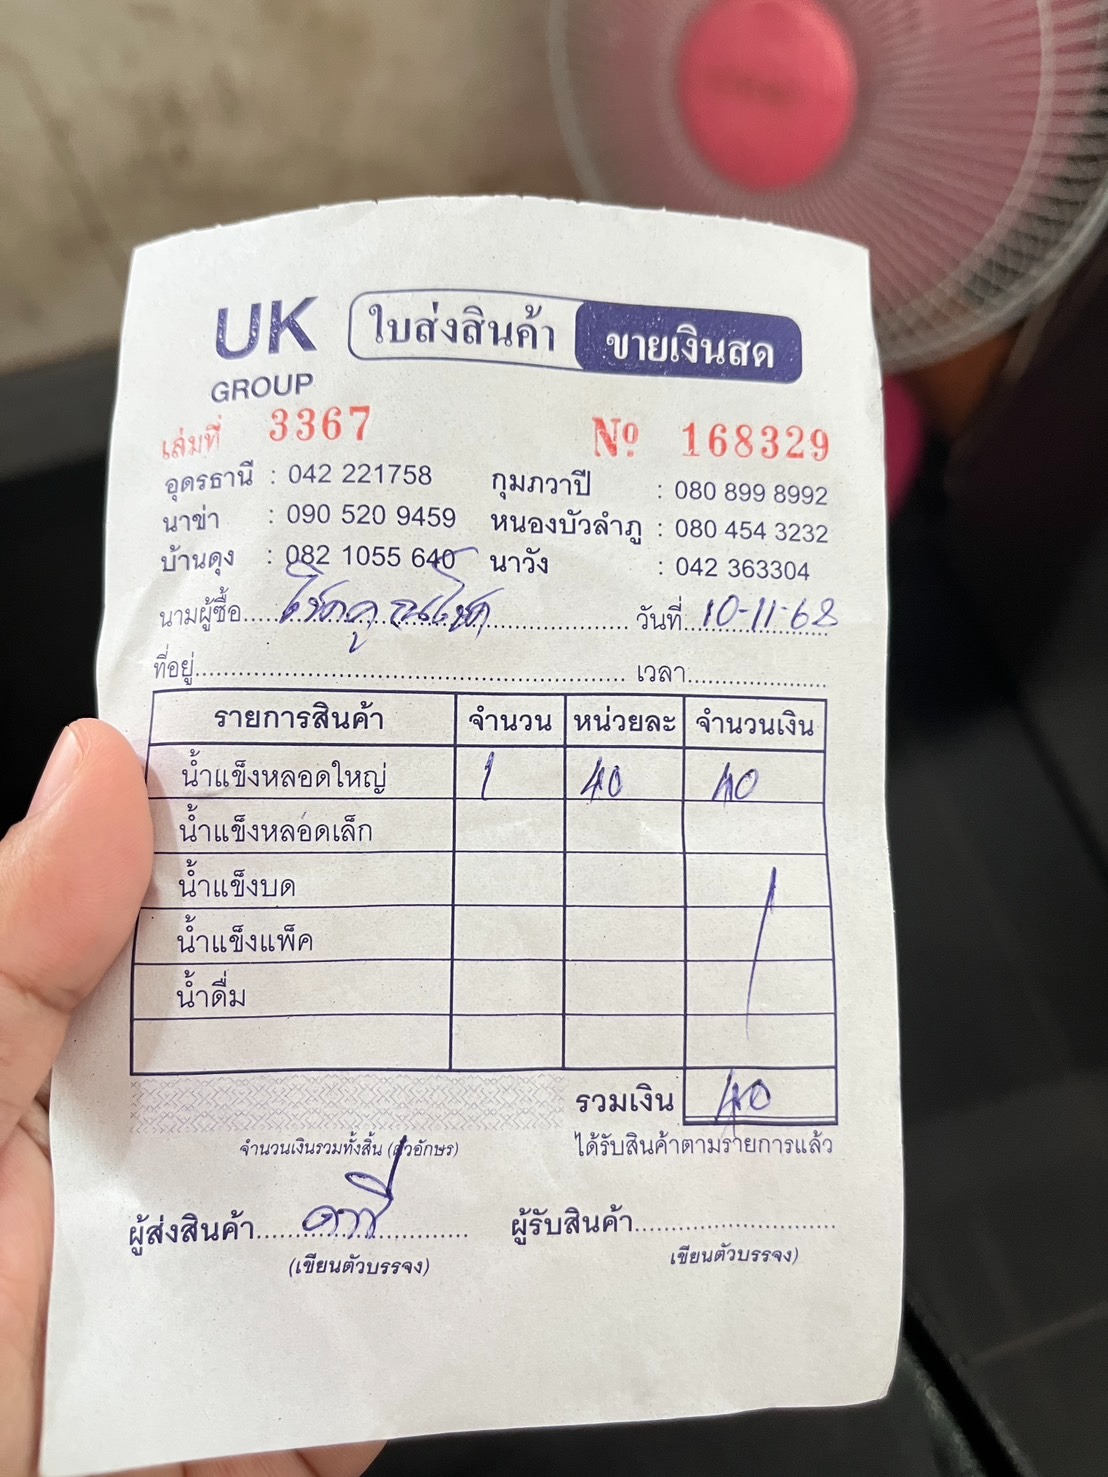 UK ใบส่งสินค้า ขายเงินสด
GROUP
เล่มที่ 3367 Nº 168329
อุดรธานี : 042 221758 กุมภวาปี : 080 899 8992
นาข่า : 090 520 9459 หนองบัวลำภู : 080 454 3232
บ้านดุง : 082 1055 640 นาวัง : 042 363304
นามผู้ซื้อ วันที่ 10-11-68
ที่อยู่ เวลา
รายการสินค้า จำนวน หน่วยละ จำนวนเงิน
น้ำแข็งหลอดใหญ่ 1 40 40
น้ำแข็งหลอดเล็ก
น้ำแข็งบด
น้ำแข็งแพ็ค
น้ำดื่ม
รวมเงิน 40
จำนวนเงินรวมทั้งสิ้น (ตัวอักษร) ได้รับสินค้าตามรายการแล้ว
ผู้ส่งสินค้า ผู้รับสินค้า
(เขียนตัวบรรจง) เขียนตัวบรรจง)